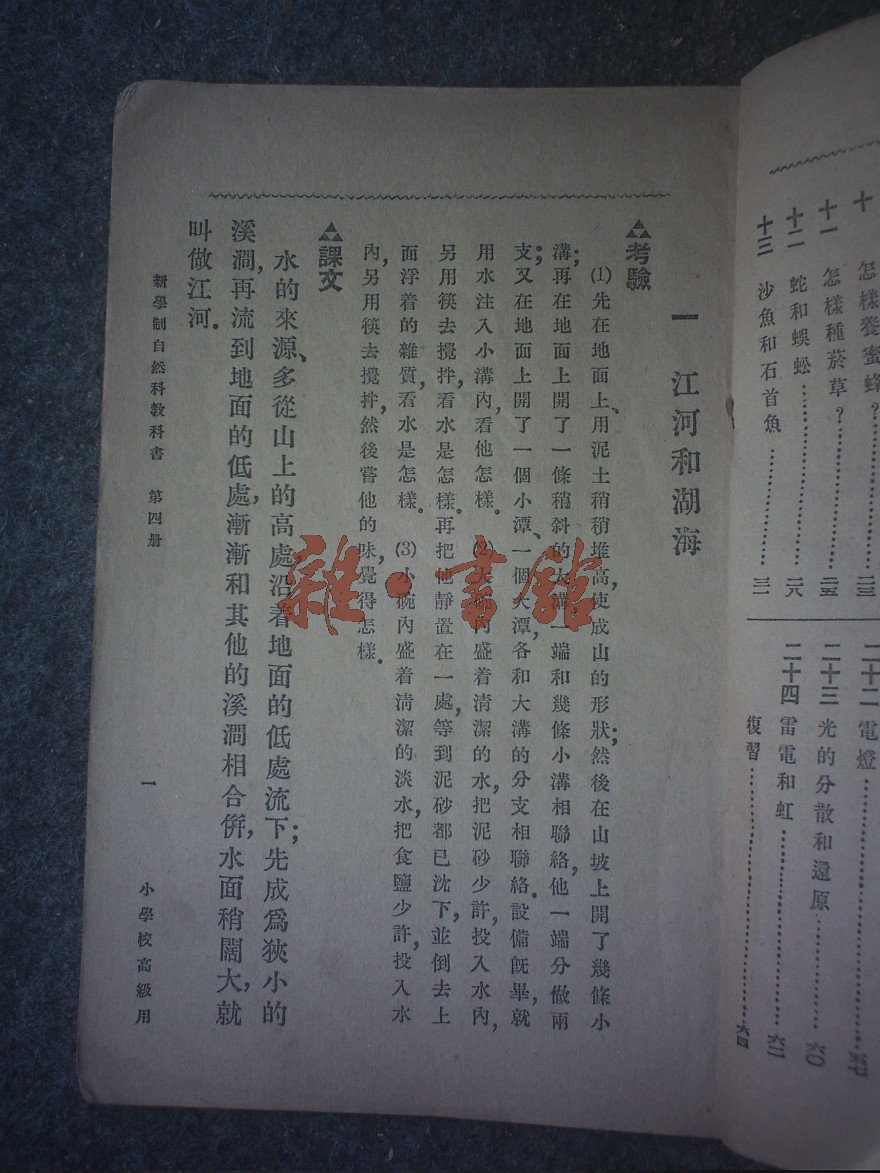 十 怎樣養蜜蜂？……二三
十一 怎樣種菸草？……二五
十二 蛇和蜈蚣……二八
十三 沙魚和石首魚……三一
二十二 電燈……
二十三 光的分散和還原……六〇
二十四 雷電和虹……六二
復習……六四
一 江河和湖海
考驗
(1)先在地面上、用泥土稍稍堆高，使成山的形狀；然後在山坡上開了幾條小
溝；再在地面上開了一條稍斜的大溝，一端和幾條小溝相聯絡，他一端分做兩
支；又在地面上開了一個小潭、一個大潭，各和大溝的分支相聯絡。設備旣畢，就
用水注入小溝內，看他怎樣。 (2)大碗內盛着清潔的水，把泥砂少許，投入水內，
另用筷去攪拌，看水是怎樣。再把他靜置在一處，等到泥砂都已沈下，並倒去上
面浮着的雜質，看水是怎樣。 (3)小碗內盛着清潔的淡水，把食鹽少許，投入水
內，另用筷去攪拌，然後嘗他的味，覺得怎樣。
課文
水的來源、多從山上的高處，沿着地面的低處流下；先成爲狹小的
溪澗，再流到地面的低處，漸漸和其他的溪澗相合倂，水面稍闊大，就
叫做江河。
新學制自然科教科書 第四册 一 小學校高級用
雜·書館